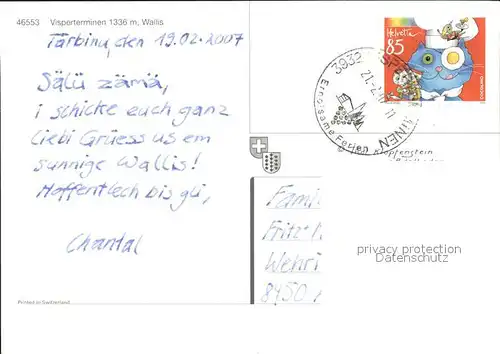 46553 Visperterminen 1336 m, Wallis
Tärbinu, den 19.02.2007
Sälü zämä,
i schicke euch ganz
liebi Grüess us em
sunnige Wallis!
Hoffentlech bis gli,
Chantal
Printed in Switzerland
Helvetia
85
3932
21.2.
11
INEN
Erholsame Ferien
Klopfenstein
Famil
Fritz-
Wehri
8450
privacy protection
Datenschutz